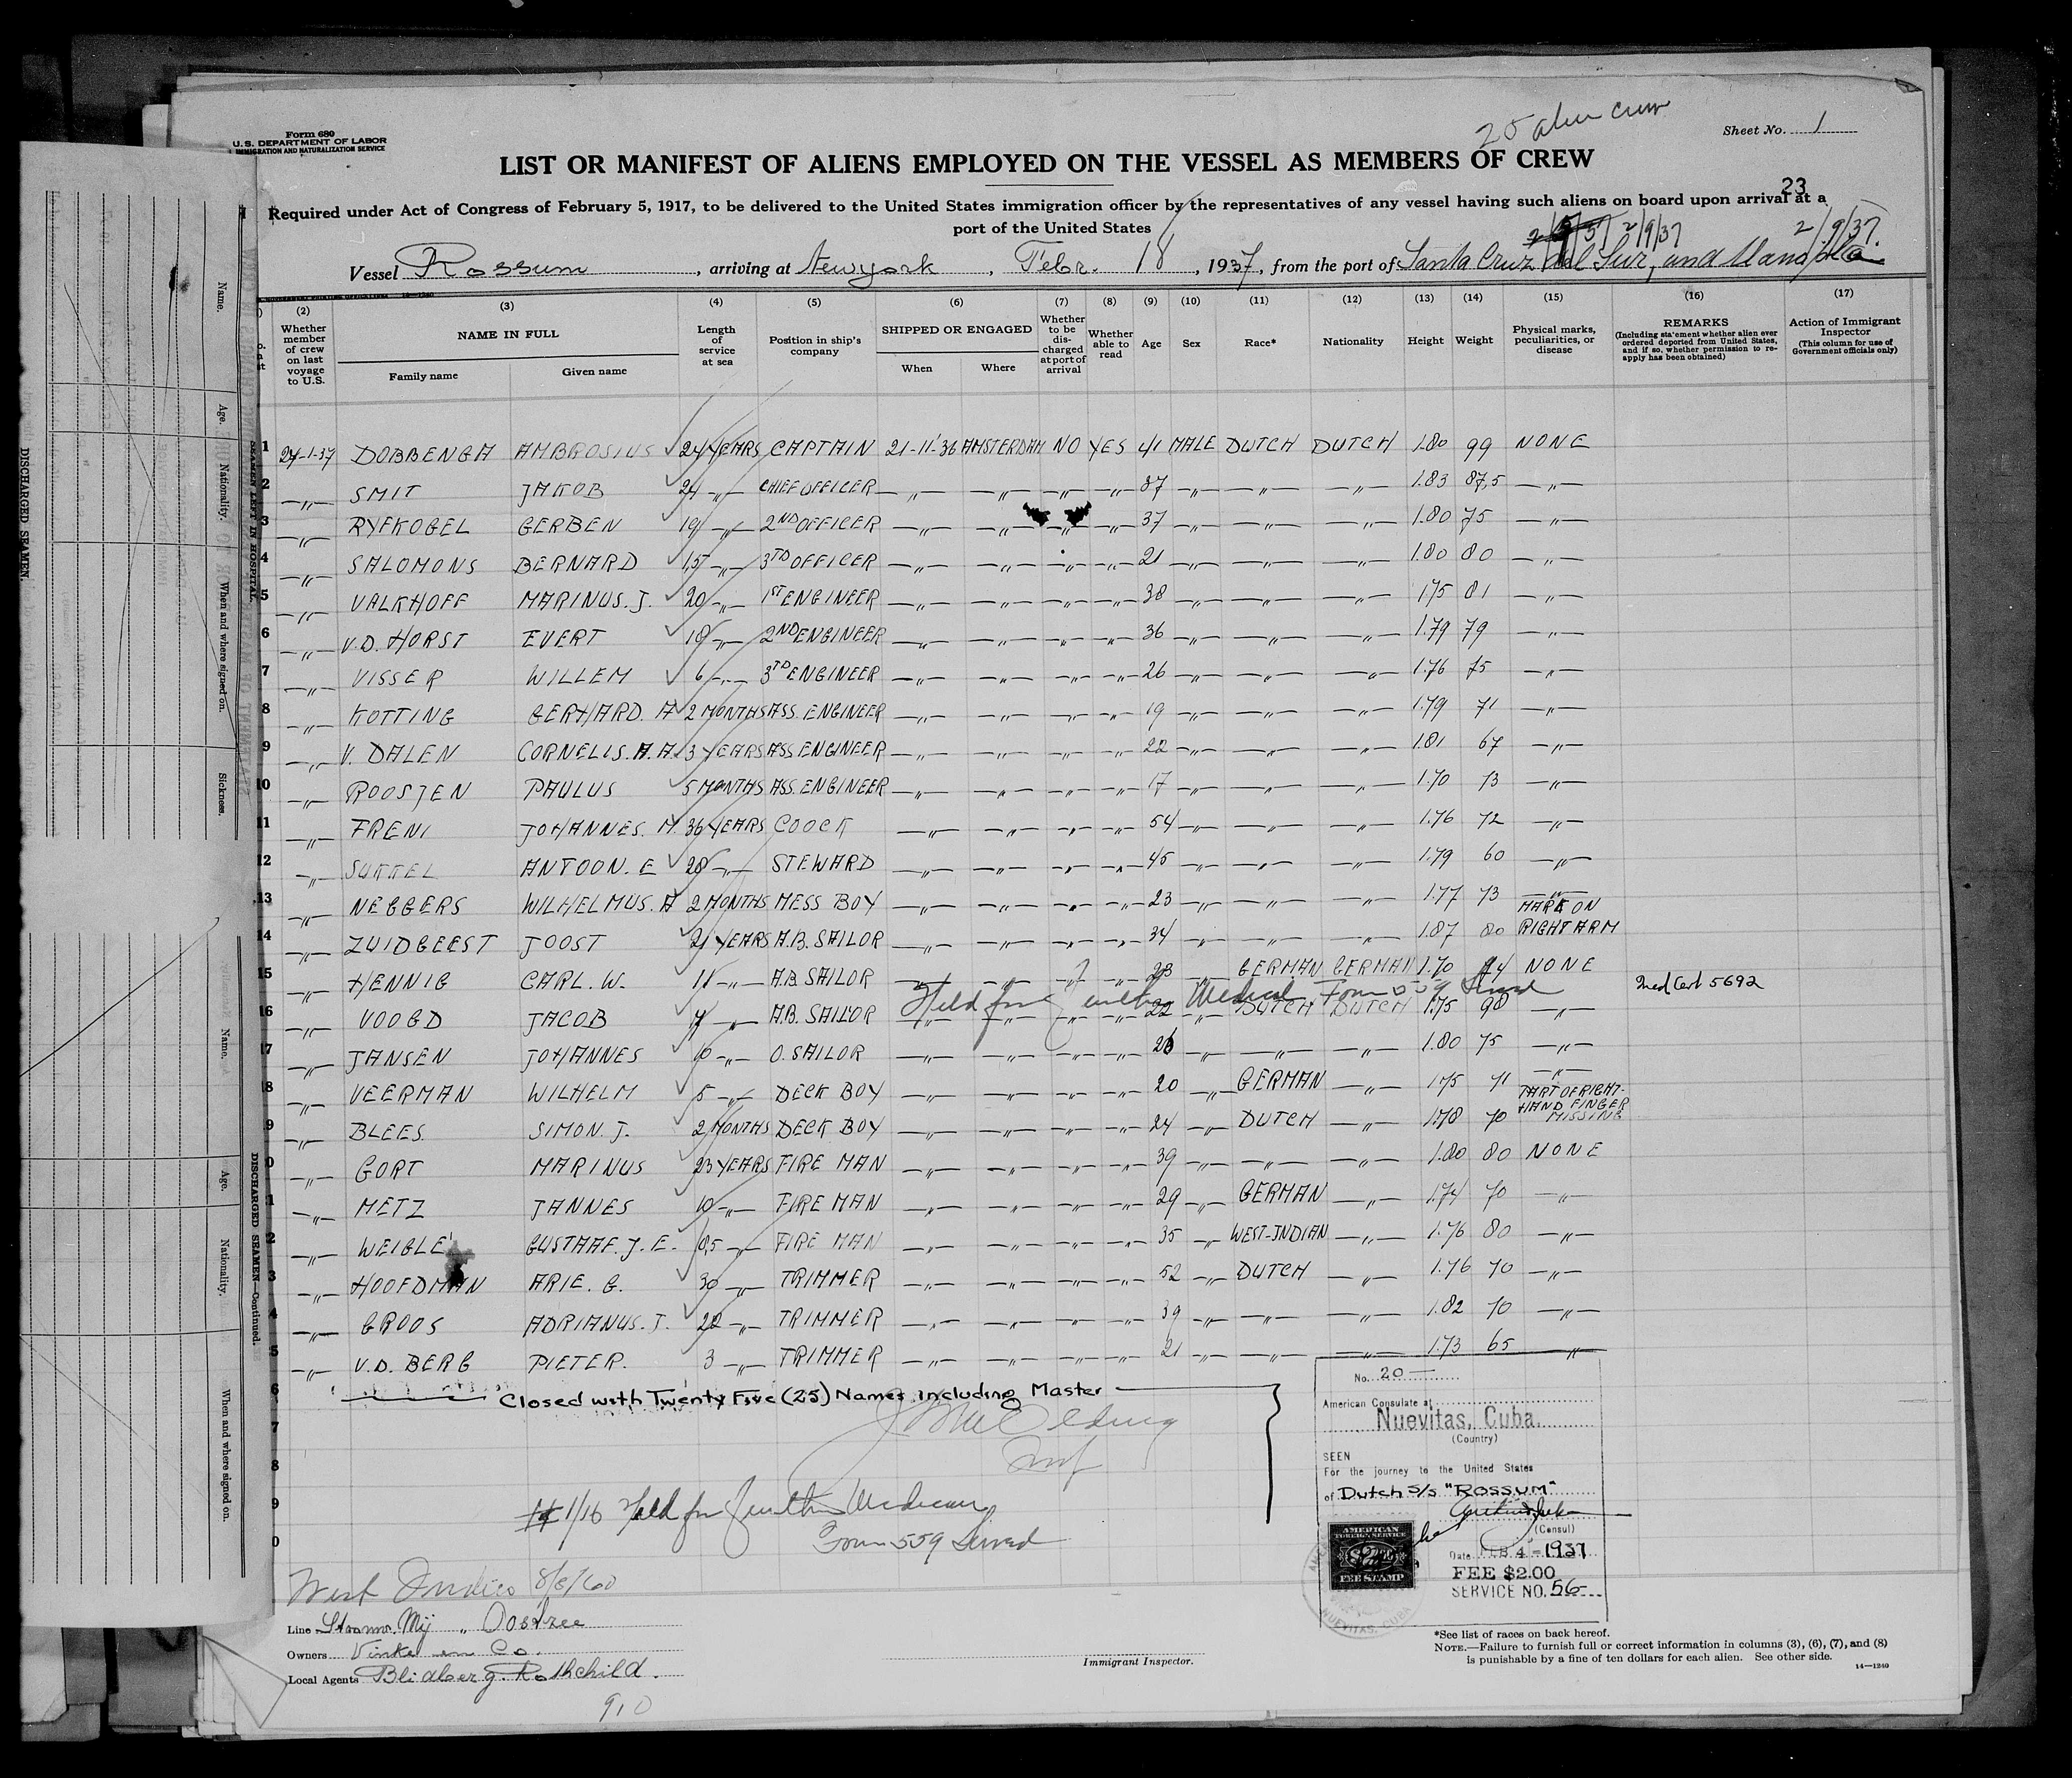 Form 680
U.S. DEPARTMENT OF LABOR
IMMIGRATION AND NATURALIZATION SERVICE
25 alien crew
Sheet No. 1
LIST OR MANIFEST OF ALIENS EMPLOYED ON THE VESSEL AS MEMBERS OF CREW
23
Required under Act of Congress of February 5, 1917, to be delivered to the United States immigration officer by the representatives of any vessel having such aliens on board upon arrival at a
port of the United States
2/9/37 2/9/37.
Vessel Rossum, arriving at Newyork, Febr. 18, 1937, from the port of Santa Cruz del Sur, and Manopla
(2) (3) (4) (5) (6) (7) (8) (9) (10) (11) (12) (13) (14) (15) (16) (17)
Whether member of crew on last voyage to U.S.
NAME IN FULL
Family name Given name
Length of service at sea
Position in ship's company
SHIPPED OR ENGAGED
When Where
Whether to be discharged at port of arrival
Whether able to read
Age
Sex
Race*
Nationality
Height
Weight
Physical marks, peculiarities, or disease
REMARKS
(Including statement whether alien ever ordered deported from United States, and if so, whether permission to reapply has been obtained)
Action of Immigrant Inspector
(This column for use of Government officials only)
1 27-1-37 DOBBENGA AMBROSIUS 24 YEARS CAPTAIN 21-11-36 AMSTERDAM NO YES 41 MALE DUTCH DUTCH 1.80 99 NONE
2 —〃— SMIT JAKOB 21 —〃— CHIEF OFFICER —〃— —〃— —〃— —〃— 37 —〃— —〃— —〃— 1.83 87,5 —〃—
3 —〃— RYFKOGEL GERBEN 19 —〃— 2ND OFFICER —〃— —〃— —〃— —〃— 37 —〃— —〃— —〃— 1.80 75 —〃—
4 —〃— SALOMONS BERNARD 1,5 —〃— 3TD OFFICER —〃— —〃— —〃— —〃— 21 —〃— —〃— —〃— 1.80 80 —〃—
5 —〃— VALKHOFF MARINUS. J. 20 —〃— 1ST ENGINEER —〃— —〃— —〃— —〃— 38 —〃— —〃— —〃— 1.75 81 —〃—
6 —〃— V.D. HORST EVERT 18 —〃— 2ND ENGINEER —〃— —〃— —〃— —〃— 36 —〃— —〃— —〃— 1.79 79 —〃—
7 —〃— VISSER WILLEM 6 —〃— 3TD ENGINEER —〃— —〃— —〃— —〃— 26 —〃— —〃— —〃— 1.76 75 —〃—
8 —〃— KOTTING GERHARD. A 2 MONTHS ASS. ENGINEER —〃— —〃— —〃— —〃— 19 —〃— —〃— —〃— 1.79 71 —〃—
9 —〃— V. DALEN CORNELIS. A. A. 3 YEARS ASS ENGINEER —〃— —〃— —〃— —〃— 22 —〃— —〃— —〃— 1.81 67 —〃—
10 —〃— ROOSJEN PAULUS 5 MONTHS ASS. ENGINEER —〃— —〃— —〃— —〃— 17 —〃— —〃— —〃— 1.70 73 —〃—
11 —〃— FRENI JOHANNES. M. 36 YEARS COOCK —〃— —〃— —〃— —〃— 54 —〃— —〃— —〃— 1.76 72 —〃—
12 —〃— SUKKEL ANTOON. E 28 —〃— STEWARD —〃— —〃— —〃— —〃— 45 —〃— —〃— —〃— 1.79 60 —〃—
13 —〃— NEGGERS WILHELMUS. A 2 MONTHS MESS BOY —〃— —〃— —〃— —〃— 23 —〃— —〃— —〃— 1.77 73 —〃—
14 —〃— ZUIDGEEST JOOST 21 YEARS A.B. SAILOR —〃— —〃— —〃— —〃— 34 —〃— —〃— —〃— 1.87 80 MARK ON RIGHT ARM
15 —〃— HENNIG CARL. W. 11 —〃— A.B. SAILOR —〃— —〃— —〃— —〃— 28 —〃— GERMAN GERMAN 1.70 74 NONE
Held for further Medical Form 559 Served
Med Cert 5692
16 —〃— VOOGD JACOB 4 —〃— A.B. SAILOR —〃— —〃— —〃— —〃— 22 —〃— DUTCH DUTCH 1.75 90 —〃—
7 —〃— JANSEN JOHANNES 10 —〃— O. SAILOR —〃— —〃— —〃— —〃— 26 —〃— —〃— —〃— 1.80 75 —〃—
8 —〃— VEERMAN WILHELM 5 —〃— DECK BOY —〃— —〃— —〃— —〃— 20 —〃— GERMAN —〃— 1.75 71 —〃—
9 —〃— BLEES SIMON. J. 2 MONTHS DECK BOY —〃— —〃— —〃— —〃— 24 —〃— DUTCH —〃— 1.78 70 PART OF RIGHT-HAND FINGER MISSING
0 —〃— GORT MARINUS 23 YEARS FIRE MAN —〃— —〃— —〃— —〃— 39 —〃— —〃— —〃— 1.80 80 NONE
1 —〃— METZ JANNES 10 —〃— FIRE MAN —〃— —〃— —〃— —〃— 29 —〃— GERMAN —〃— 1.74 70 —〃—
2 —〃— WEIGLE GUSTAAF. J. E. 0,5 —〃— FIRE MAN —〃— —〃— —〃— —〃— 35 —〃— WEST-INDIAN —〃— 1.76 80 —〃—
3 —〃— HOOFDMAN ARIE. G. 30 —〃— TRIMMER —〃— —〃— —〃— —〃— 52 —〃— DUTCH —〃— 1.76 70 —〃—
4 —〃— GROOS ADRIANUS. J. 22 —〃— TRIMMER —〃— —〃— —〃— —〃— 39 —〃— —〃— —〃— 1.82 70 —〃—
5 —〃— V.D. BERG PIETER. 3 —〃— TRIMMER —〃— —〃— —〃— —〃— 21 —〃— —〃— —〃— 1.73 65 —〃—
6 Closed with Twenty Five (25) Names including Master
7
8
9
0
1/16 Held for further Medical
Form 559 Served
No. 20
American Consulate at
Nuevitas, Cuba.
(Country)
SEEN
For the journey to the United States
of Dutch S/S "ROSSUM"
(Consul)
Date FEB 4 - 1937
FEE $2.00
SERVICE NO. 56
AMERICAN
FOREIGN SERVICE
$2.00
FEE STAMP
NUEVITAS, CUBA
West Indies 8/8/60
Line Stoomv. Mij „ Oostzee
Owners Vinke en Co.
Local Agents Blidberg. Rothchild.
910
Immigrant Inspector.
*See list of races on back hereof.
NOTE.—Failure to furnish full or correct information in columns (3), (6), (7), and (8)
is punishable by a fine of ten dollars for each alien. See other side.
14—1240
DISCHARGED SEAMEN.
Name.
Age.
Nationality.
When and where signed on.
Sickness.
SEAMEN LEFT IN HOSPITAL.
DISCHARGED SEAMEN—Continued.
Name.
Age.
Nationality.
When and where signed on.